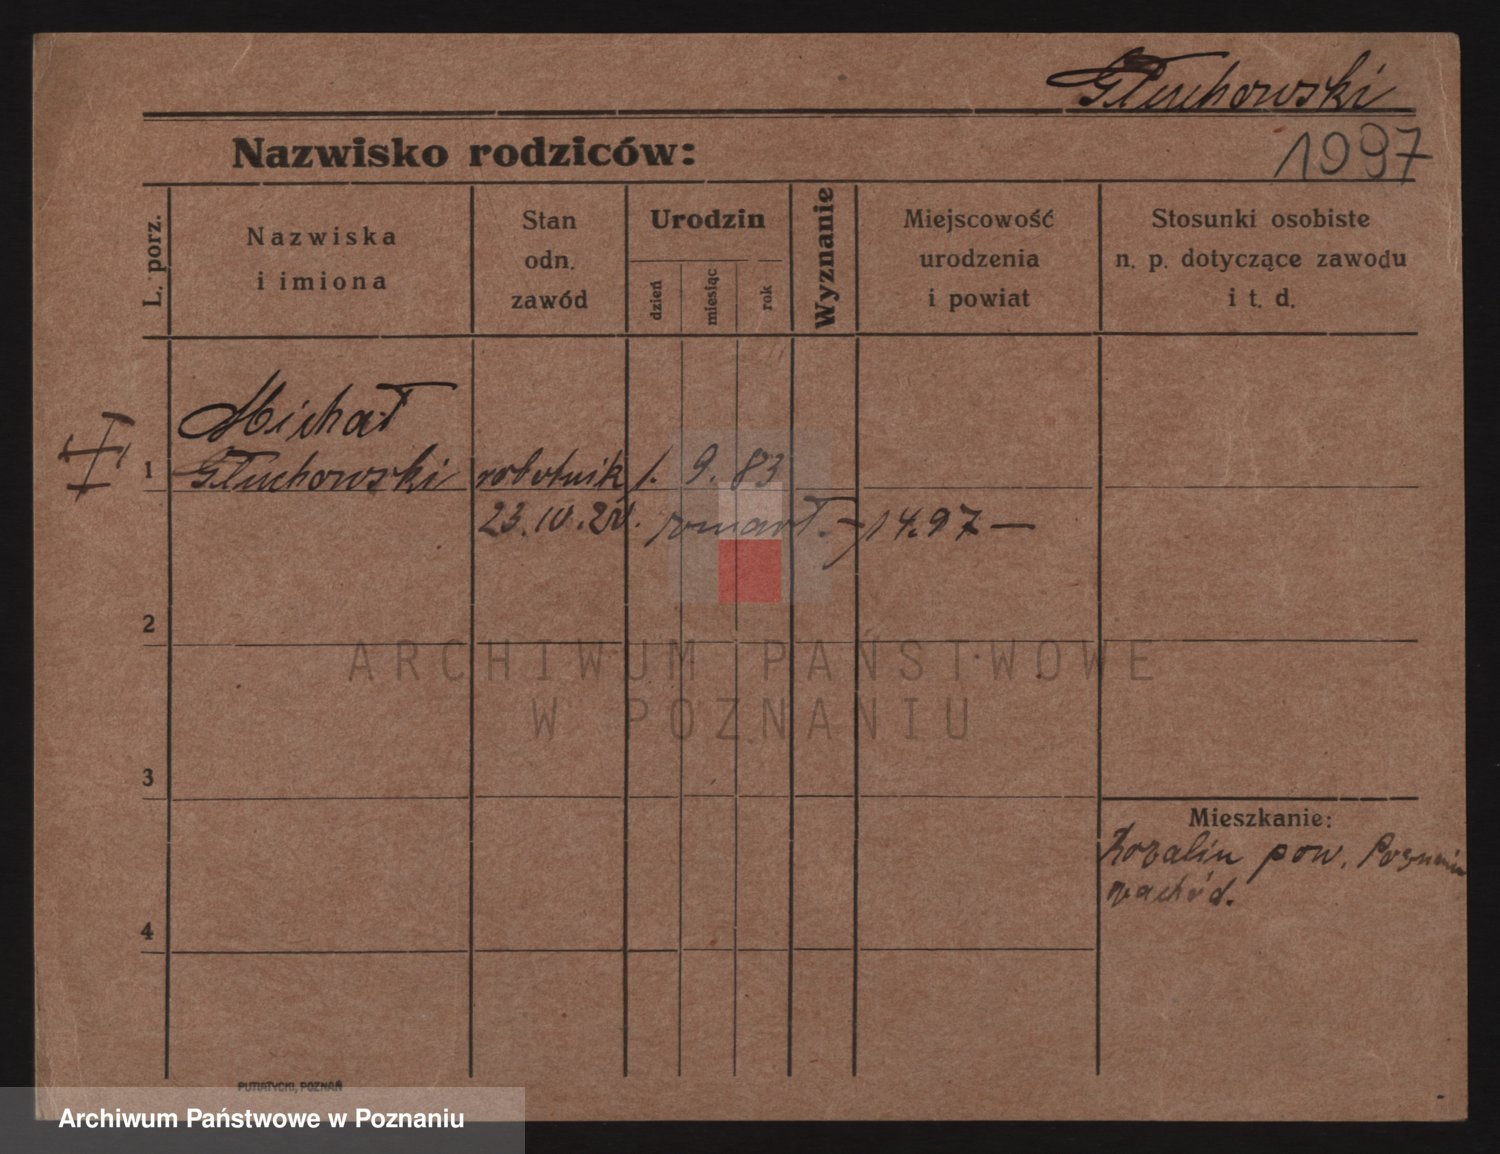 Głuchowski
Nazwisko rodziców:
1997
L. porz.
Nazwiska
i imiona
Stan
odn.
zawód
Urodzin
dzień
miesiąc
rok
Wyznanie
Miejscowość
urodzenia
i powiat
Stosunki osobiste
n. p. dotyczące zawodu
i t. d.
Michał
1 Głuchowski robotnik 1. 9. 83
23. IV. zmarł. – 1497 –
2
ARCHIWUM PAŃSTWOWE
W POZNANIU
3
Mieszkanie:
pow. Poznań
zachód.
4
PUTIATYCKI, POZNAŃ
Archiwum Państwowe w Poznaniu